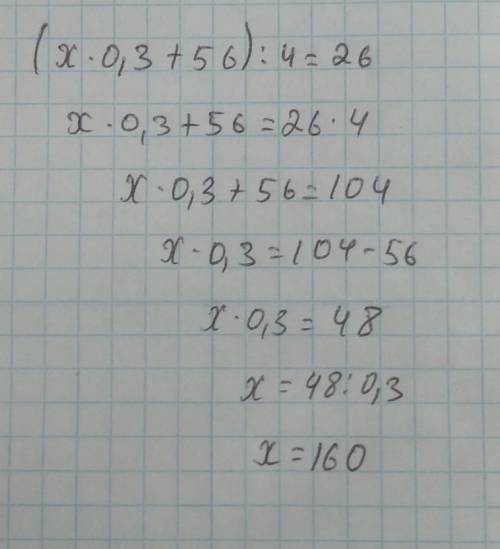 (x · 0,3 + 56) : 4 = 26
x · 0,3 + 56 = 26 · 4
x · 0,3 + 56 = 104
x · 0,3 = 104 - 56
x · 0,3 = 48
x = 48 : 0,3
x = 160